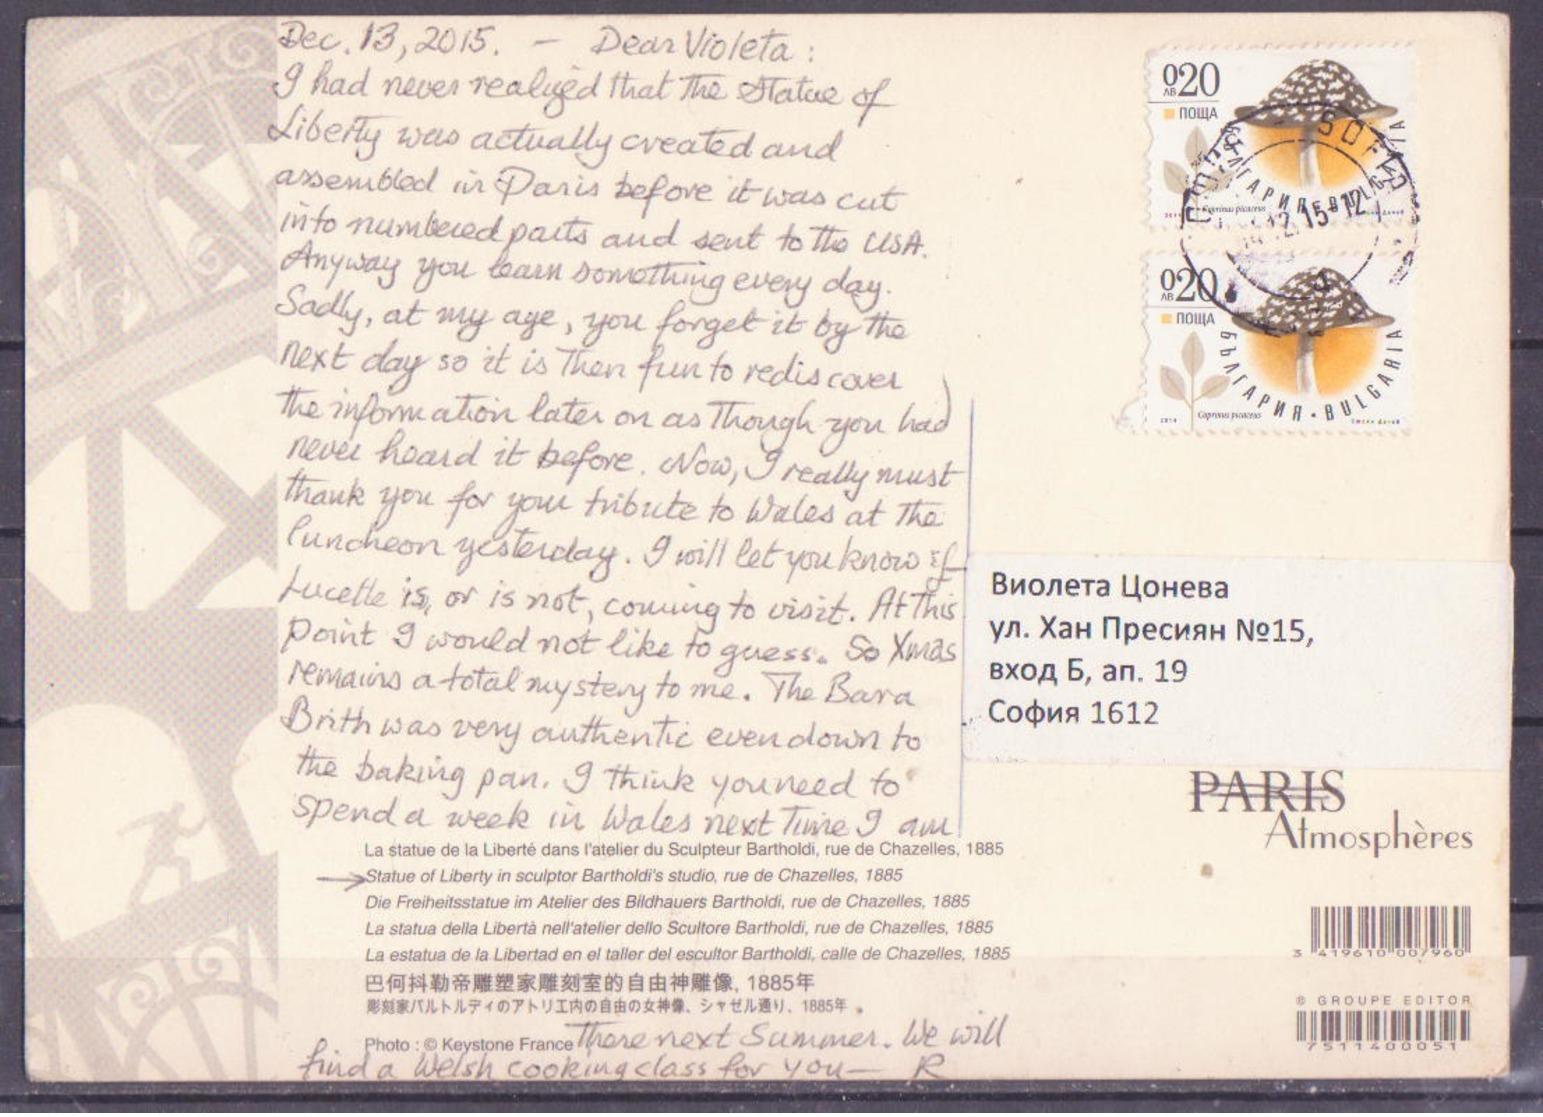 Dec. 13, 2015. - Dear Violeta:
I had never realized that the Statue of
Liberty was actually created and
assembled in Paris before it was cut
into numbered parts and sent to the USA.
Anyway you learn something every day.
Sadly, at my age, you forget it by the
next day so it is then fun to rediscover
the information later on as though you had
never heard it before. Now, I really must
thank you for your tribute to Wales at the
luncheon yesterday. I will let you know if
Lucette is, or is not, coming to visit. At this
point I would not like to guess. So Xmas
remains a total mystery to me. The Bara
Brith was very authentic even down to
the baking pan. I think you need to
spend a week in Wales next time I am
La statue de la Liberté dans l'atelier du Sculpteur Bartholdi, rue de Chazelles, 1885
Statue of Liberty in sculptor Bartholdi's studio, rue de Chazelles, 1885
Die Freiheitsstatue im Atelier des Bildhauers Bartholdi, rue de Chazelles, 1885
La statua della Libertà nell'atelier dello Scultore Bartholdi, rue de Chazelles, 1885
La estatua de la Libertad en el taller del escultor Bartholdi, calle de Chazelles, 1885
巴何抖勒帝雕塑家雕刻室的自由神雕像, 1885年
彫刻家バルトルディのアトリエ内の自由の女神像、シャゼル通り、1885年。
Photo : © Keystone France
There next Summer. We will
find a Welsh cooking class for you— R
020
ЛВ
ПОЩА
БЪЛГАРИЯ
Coprinus picaceus
SOFIA
12.15-12
020
ЛВ
ПОЩА
БЪЛГАРИЯ • BULGARIA
Coprinus picaceus
2014
Виолета Цонева
ул. Хан Пресиян №15,
вход Б, ап. 19
София 1612
PARIS
Atmosphères
3 419610 007960
© GROUPE EDITOR
7511400051